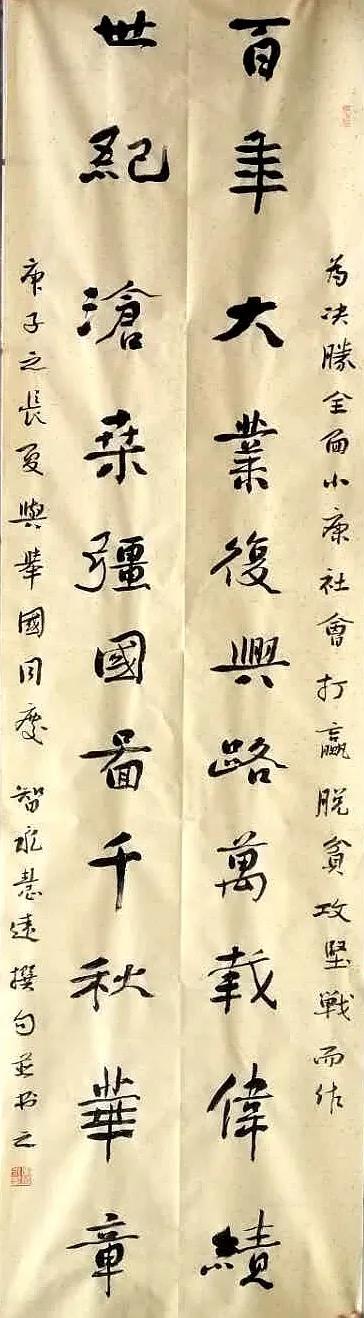 為决勝全面小康社會打贏脱貧攻堅戰而作
百年大業復興路萬載偉績
世紀滄桒彊國圖千秋華章
庚子之長夏與舉國同慶 智慧遠撰句並书之